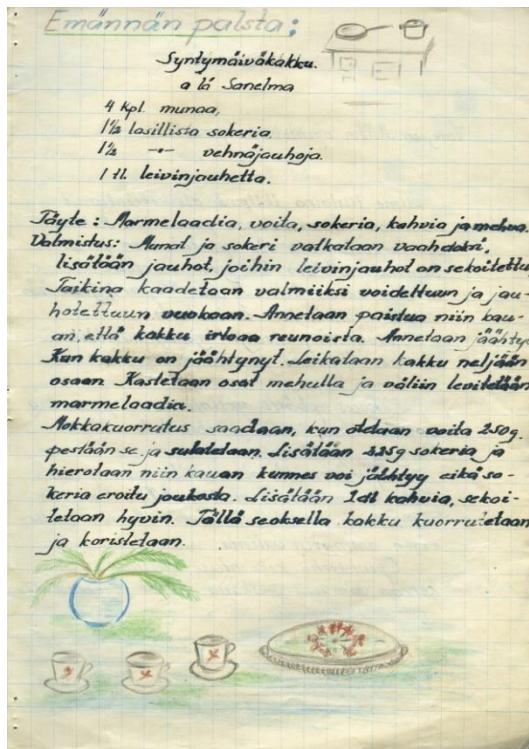 Emännän palsta:
Syntymäiväkakku.
a lá Sanelma
4 kpl. munaa,
1½ lasillista sokeria.
1½ -"- vehnäjauhoja.
1 tl. leivinjauhetta.
Täyte: Marmelaadia, voita, sokeria, kahvia ja mehua.
Valmistus: Munat ja sokeri vatkataan vaahdoksi,
lisätään jauhot, joihin leivinjauhot on sekoitettu.
Taikina kaadetaan valmiiksi voideltuun ja jau-
hotettuun vuokaan. Annetaan paistua niin kau-
an, että kakku irtoaa reunoista. Annetaan jäähtyä
Kun kakku on jäähtynyt. Leikataan kakku neljään
osaan. Kastetaan osat mehulla ja väliin levitetään
marmelaadia.
Mokkakuorrutus saadaan, kun otetaan voita 250g.
pestään se ja sulatetaan. Lisätään 225g sokeria ja
hierotaan niin kauan kunnes voi jäähtyy eikä so-
keria eroitu joukosta. Lisätään 2dl kahvia, sekoi-
tetaan hyvin. Tällä seoksella kakku kuorrutetaan
ja koristetaan.